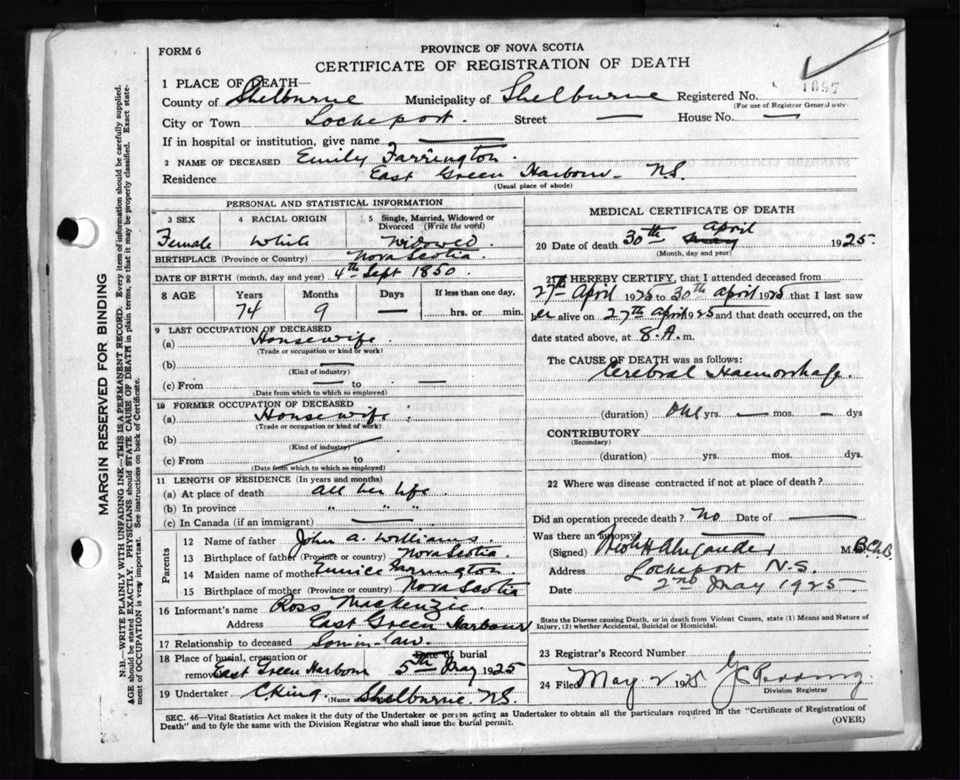 FORM 6
PROVINCE OF NOVA SCOTIA
CERTIFICATE OF REGISTRATION OF DEATH
1 PLACE OF DEATH—
County of Shelburne Municipality of Shelburne Registered No. 1897
(For use of Registrar General only)
City or Town Lockeport. Street — House No. —
If in hospital or institution, give name —
2 NAME OF DECEASED Emily Farrington.
Residence East Green Harbour N.S.
(Usual place of abode)
PERSONAL AND STATISTICAL INFORMATION
3 SEX 4 RACIAL ORIGIN 5 Single, Married, Widowed or Divorced (Write the word)
Female White Widowed
BIRTHPLACE (Province or Country) Nova Scotia.
DATE OF BIRTH (month, day and year) 4th Sept 1850
8 AGE Years Months Days If less than one day,
74 9 — hrs. or min.
9 LAST OCCUPATION OF DECEASED
(a) Housewife
(Trade or occupation or kind of work)
(b) —
(Kind of industry)
(c) From — to —
(Date from which to which so employed)
10 FORMER OCCUPATION OF DECEASED
(a) Housewife
(Trade or occupation or kind of work)
(b)
(Kind of industry)
(c) From to
(Date from which to which so employed)
11 LENGTH OF RESIDENCE (In years and months)
(a) At place of death all her life
(b) In province " " "
(c) In Canada (if an immigrant) —
Parents
12 Name of father John A. Williams
13 Birthplace of father (Province or country) Nova Scotia.
14 Maiden name of mother Eunice Farrington
15 Birthplace of mother (Province or country) Nova Scotia
16 Informant's name Ross Mackenzie
Address East Green Harbour
17 Relationship to deceased Son in law
18 Place of burial, cremation or removal East Green Harbour Date of burial 5th May 1925
19 Undertaker C King. (Name Shelburne N.S.
MEDICAL CERTIFICATE OF DEATH
20 Date of death 30th May April 1925.
(Month, day and year)
21 I HEREBY CERTIFY, that I attended deceased from
27th April 1925 to 30th April 1925 that I last saw
her alive on 27th April 1925 and that death occurred, on the
date stated above, at 8.A.m.
The CAUSE OF DEATH was as follows:
Cerebral Haemorrhage.
(duration) One yrs. — mos. — dys
CONTRIBUTORY
(Secondary)
(duration) yrs. mos. dys.
22 Where was disease contracted if not at place of death?
Did an operation precede death? No Date of —
Was there an autopsy?
(Signed) Alexander M.B.Ch.B.
Address Lockeport N.S.
Date 2nd May 1925
State the Disease causing Death, or in death from Violent Causes, state (1) Means and Nature of Injury, (2) whether Accidental, Suicidal or Homicidal.
23 Registrar's Record Number
24 Filed May 2 1925
Division Registrar
SEC. 46—Vital Statistics Act makes it the duty of the Undertaker or person acting as Undertaker to obtain all the particulars required in the "Certificate of Registration of
Death" and to fyle the same with the Division Registrar who shall issue the burial permit. (OVER)
MARGIN RESERVED FOR BINDING
N.B.—WRITE PLAINLY WITH UNFADING INK—THIS IS A PERMANENT RECORD. Every item of information should be carefully supplied.
AGE should be stated EXACTLY. PHYSICIANS should STATE CAUSE OF DEATH in plain terms, so that it may be properly classified. Exact statement of OCCUPATION is very important. See instructions on back of Certificate.